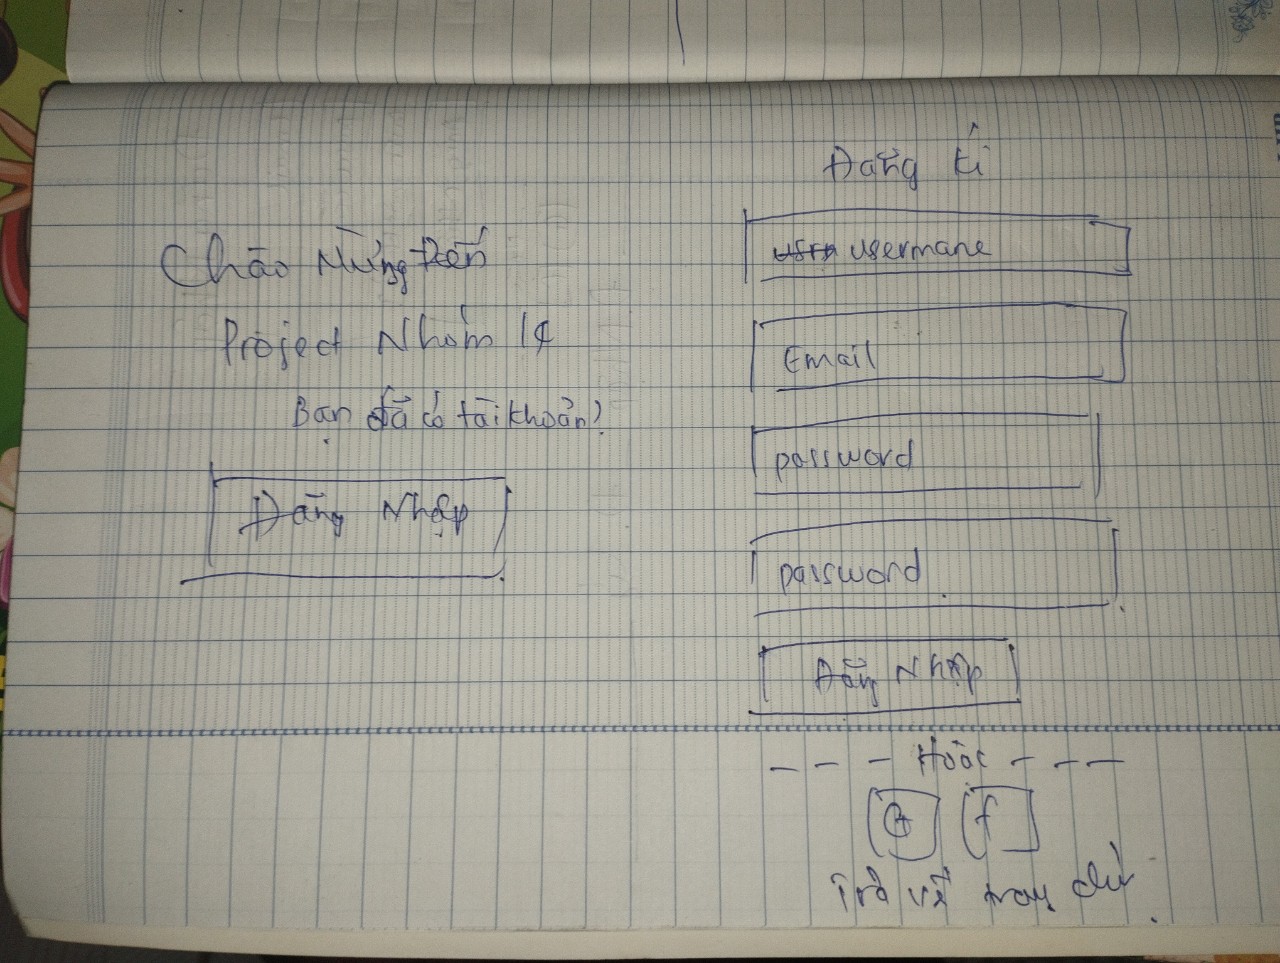 Chào Mừng Đến
Project Nhóm 14
Bạn đã có tài khoản?
Đăng Nhập
Đăng kí
usermane
Email
password
password
Đăng Nhập
--- Hoặc ---
G f
Trở về trang chủ